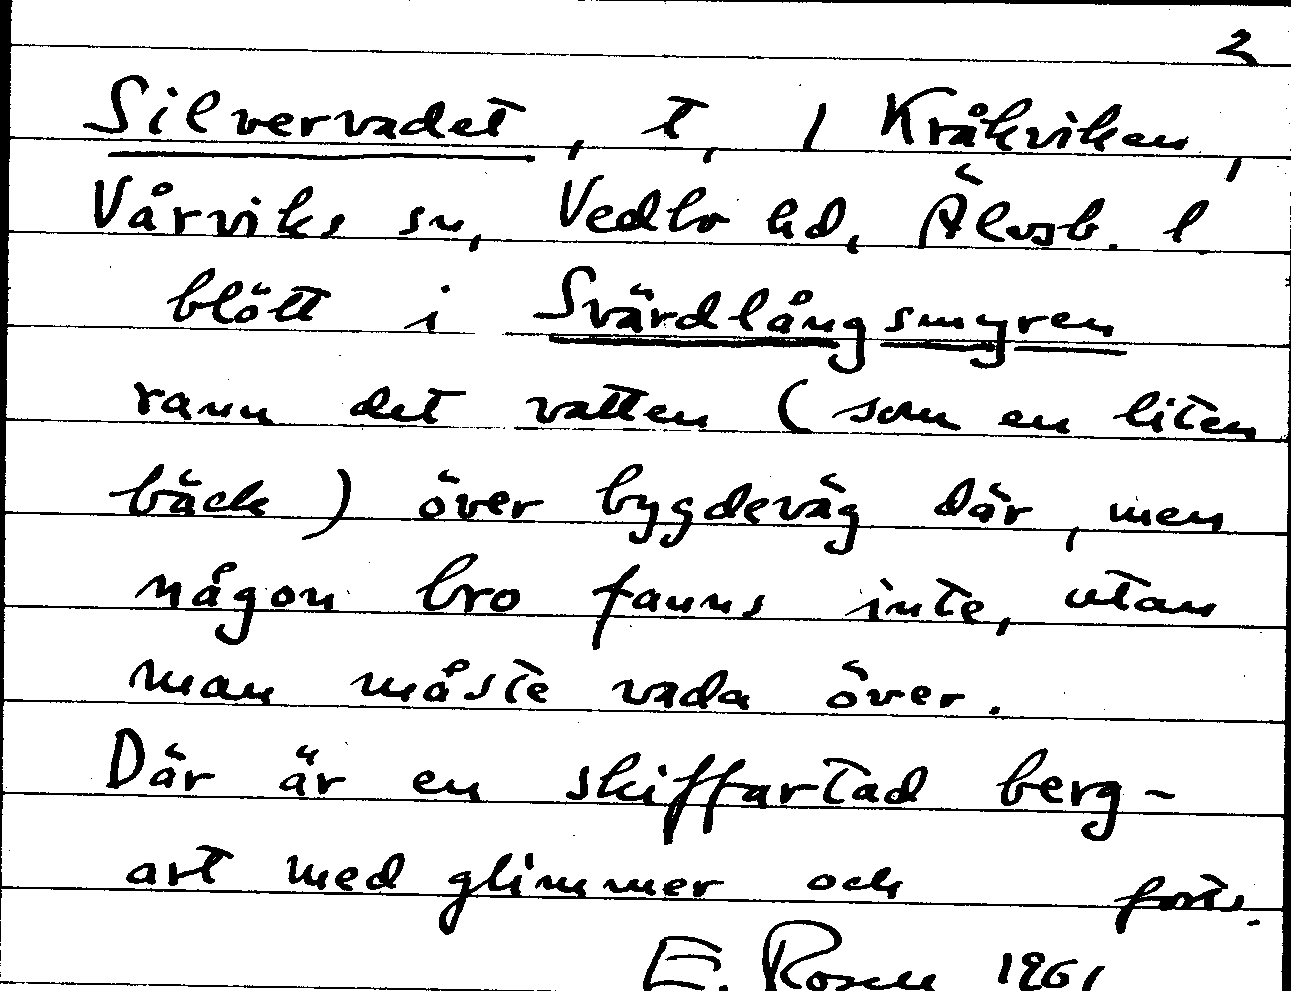 2
Silvervadet, t, 1 Kråkviken,
Vårviks sn, Vedbo hd, Älvsb. l
blött i Svärdlångsmyren
rann det vatten (som en liten
bäck) över bygdeväg där, men
någon bro fanns inte, utan
man måste vada över.
Där är en skiffartad berg-
art med glimmer och forts.
E. Rosell 1961